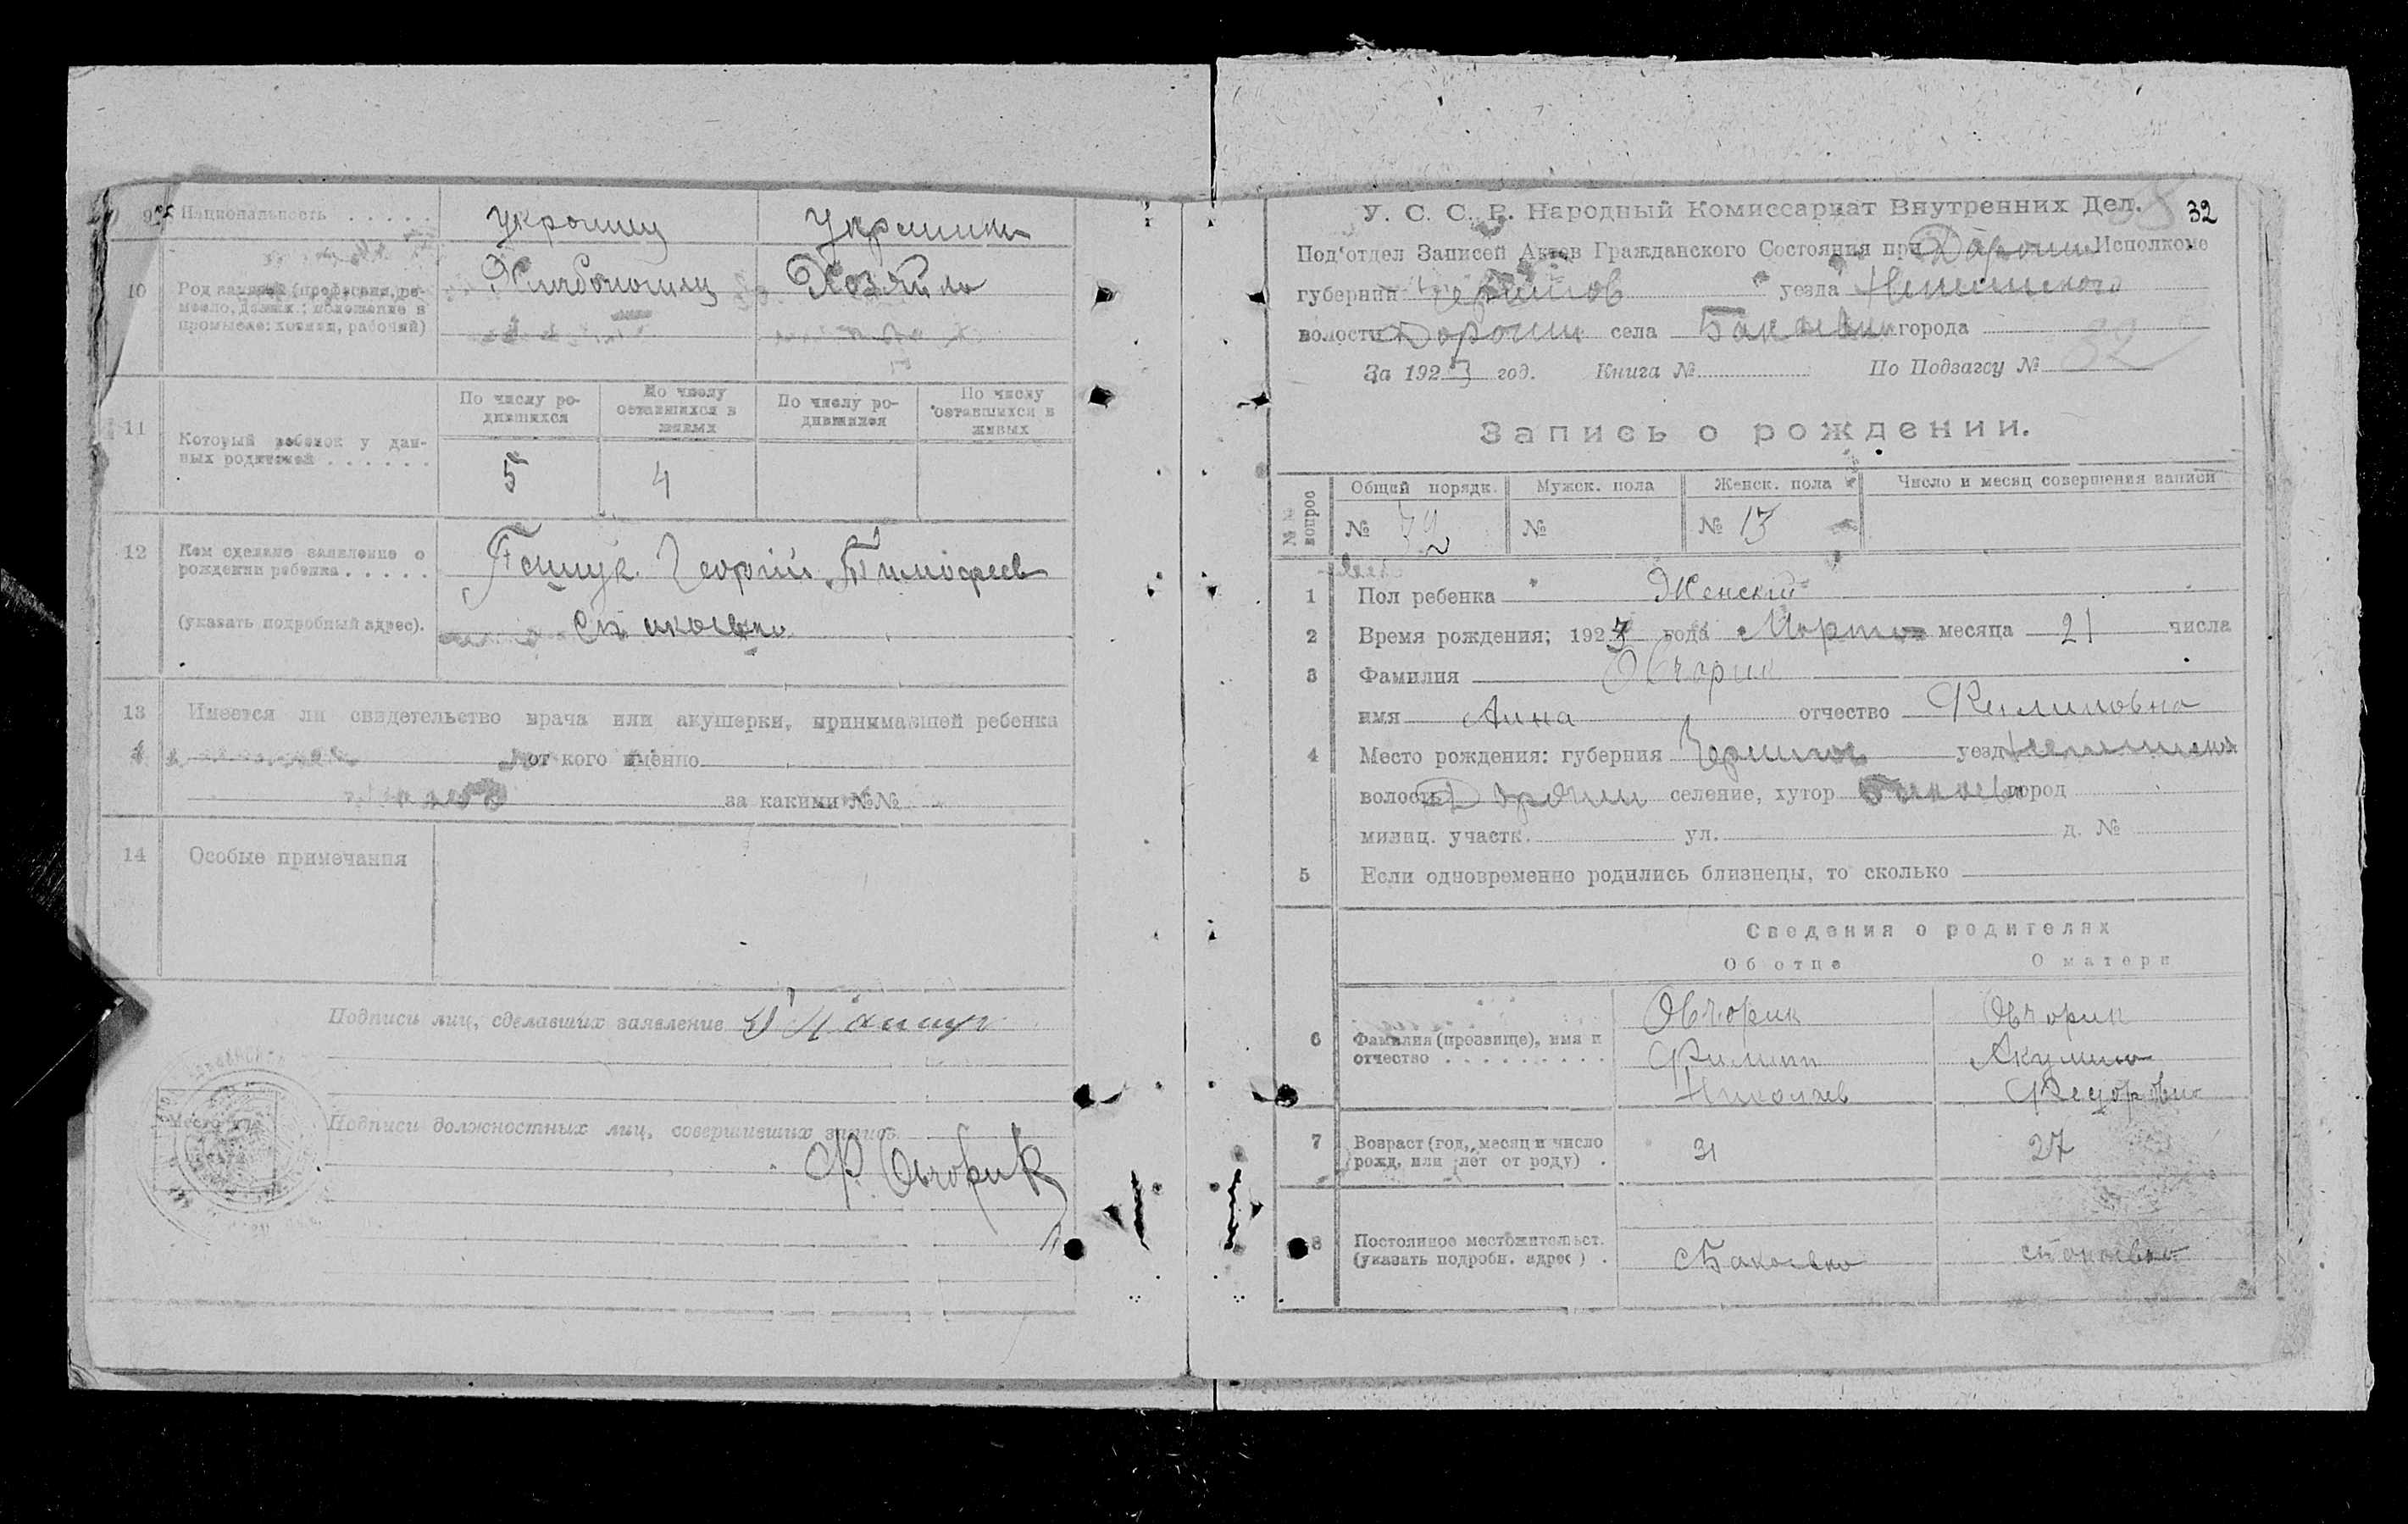 9 Национальность . . . . . украинец Украинка
10 Род занятий (профессия, ре-
месло, должн.; положение в
промысле: хозяин, рабочий)
Хозяйка
11 Который ребенок у дан-
ных родителей . . . . . .
По числу ро-
дившихся
По числу
оставшихся в
живых
По числу ро-
дившихся
По числу
оставшихся в
живых
5 4
12 Кем сделано заявление о
рождении ребенка . . . . .
Георгий Тимофеев
(указать подробный адрес).
13 Имеется ли свидетельство врача или акушерки, принимавшей ребенка
от кого именно
за какими №№
14 Особые примечания
Подписи лиц, сделавших заявление
Подписи должностных лиц, совершивших запись
Ф. Овчорик
У. С. С. Р. Народный Комиссариат Внутренних Дел. 32
Под'отдел Записей Актов Гражданского Состояния при Дорогин Исполкоме
губернии Чернигов уезда
волости Дорогин села города
За 1923 год. Книга № По Подзагсу № 32
Запись о рождении.
№№ вопрос
Общий порядк. Мужск. пола Женск. пола Число и месяц совершения записи
№ 32 № № 13
1 Пол ребенка Женский
2 Время рождения; 1923 года Марта месяца 21 числа
3 Фамилия Овчорик
имя Анна отчество Филиповна
4 Место рождения: губерния Чернигов уезд
волость Дорогин селение, хутор город
милиц. участк. ул. д. №
5 Если одновременно родились близнецы, то сколько
Сведения о родителях
Об отце О матери
6 Фамилия (прозвище), имя и
отчество . . . . . . . . .
Овчорик Овчорик
Филипп Акулина
Николаев Федоровна
7 Возраст (год, месяц и число
рожд. или лет от роду) .
31 27
8 Постоянное местожительст.
(указать подробн. адрес) .